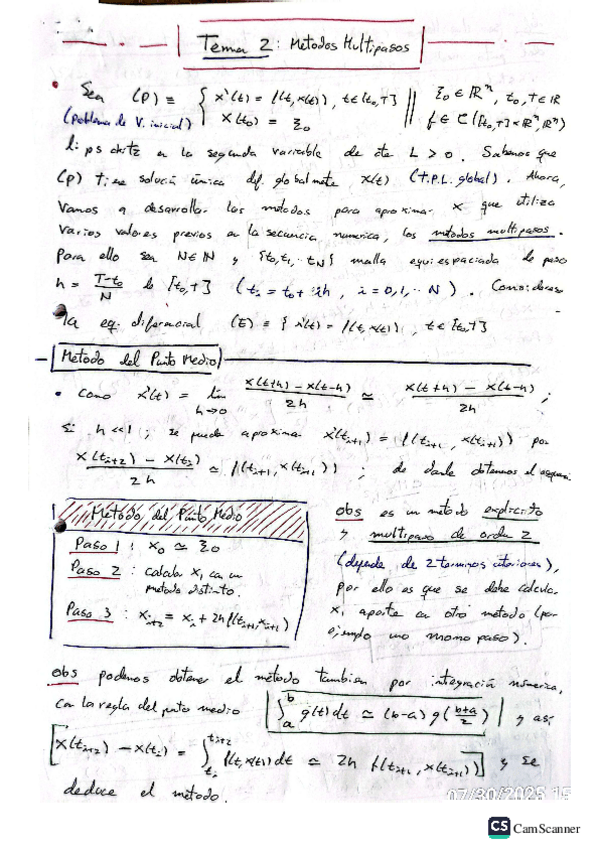 Tema 2: Metodos Multipasos
• Sea (P) ≡ { x'(t) = f(t, x(t)), t ∈ [t0, T] || ξ0 ∈ ℝⁿ, t0, T ∈ ℝ
(Problema de V. inicial) { x(t0) = ξ0 || f ∈ C([t0,T]×ℝⁿ, ℝⁿ)
lipschitz en la segunda variable de cte L > 0. Sabemos que
(P) tiene solución única def. globalmente, x(t) (T.P.L. global). Ahora,
vamos a desarrollar los metodos para aproximar x que utiliza
varios valores previos en la secuencia numerica, los metodos multipasos.
Para ello sea N ∈ ℕ y {t0, t1, ... tN} malla equiespaciada de paso
h = (T-t0)/N de [t0, T] (ti = t0 + ih, i = 0, 1, ... N). Consideremos
la eq. diferencial (E) ≡ { x'(t) = f(t, x(t)), t ∈ [t0, T]
Metodo del Punto Medio
• Como x'(t) = lim h→0 (x(t+h) - x(t-h))/2h ≃ (x(t+h) - x(t-h))/2h ;
si h << 1 ; se puede aproximar x'(ti+1) = f(ti+1, x(ti+1)) por
(x(ti+2) - x(ti))/2h ≃ f(ti+1, x(ti+1)) ; de donde obtenemos el esquema:
Metodo del Punto Medio
Paso 1 : x0 ≃ ξ0
Paso 2 : calcular x1 con un
metodo distinto.
Paso 3 : xi+2 = xi + 2h f(ti+1, xi+1)
obs es un metodo explicito
y multipaso de orden 2
(depende de 2 terminos anteriores),
por ello es que se debe calcular
x1 aparte con otro metodo (por
ejemplo uno monopaso).
obs podemos obtener el metodo tambien por integración númerica,
con la regla del punto medio ∫ₐᵇ g(t) dt ≃ (b-a) g((b+a)/2) y así
[x(ti+2) - x(ti) = ∫ti^ti+2 f(t, x(t)) dt ≃ 2h f(ti+1, x(ti+1))] y se
deduce el metodo.
07/30/2025 15
CS CamScanner